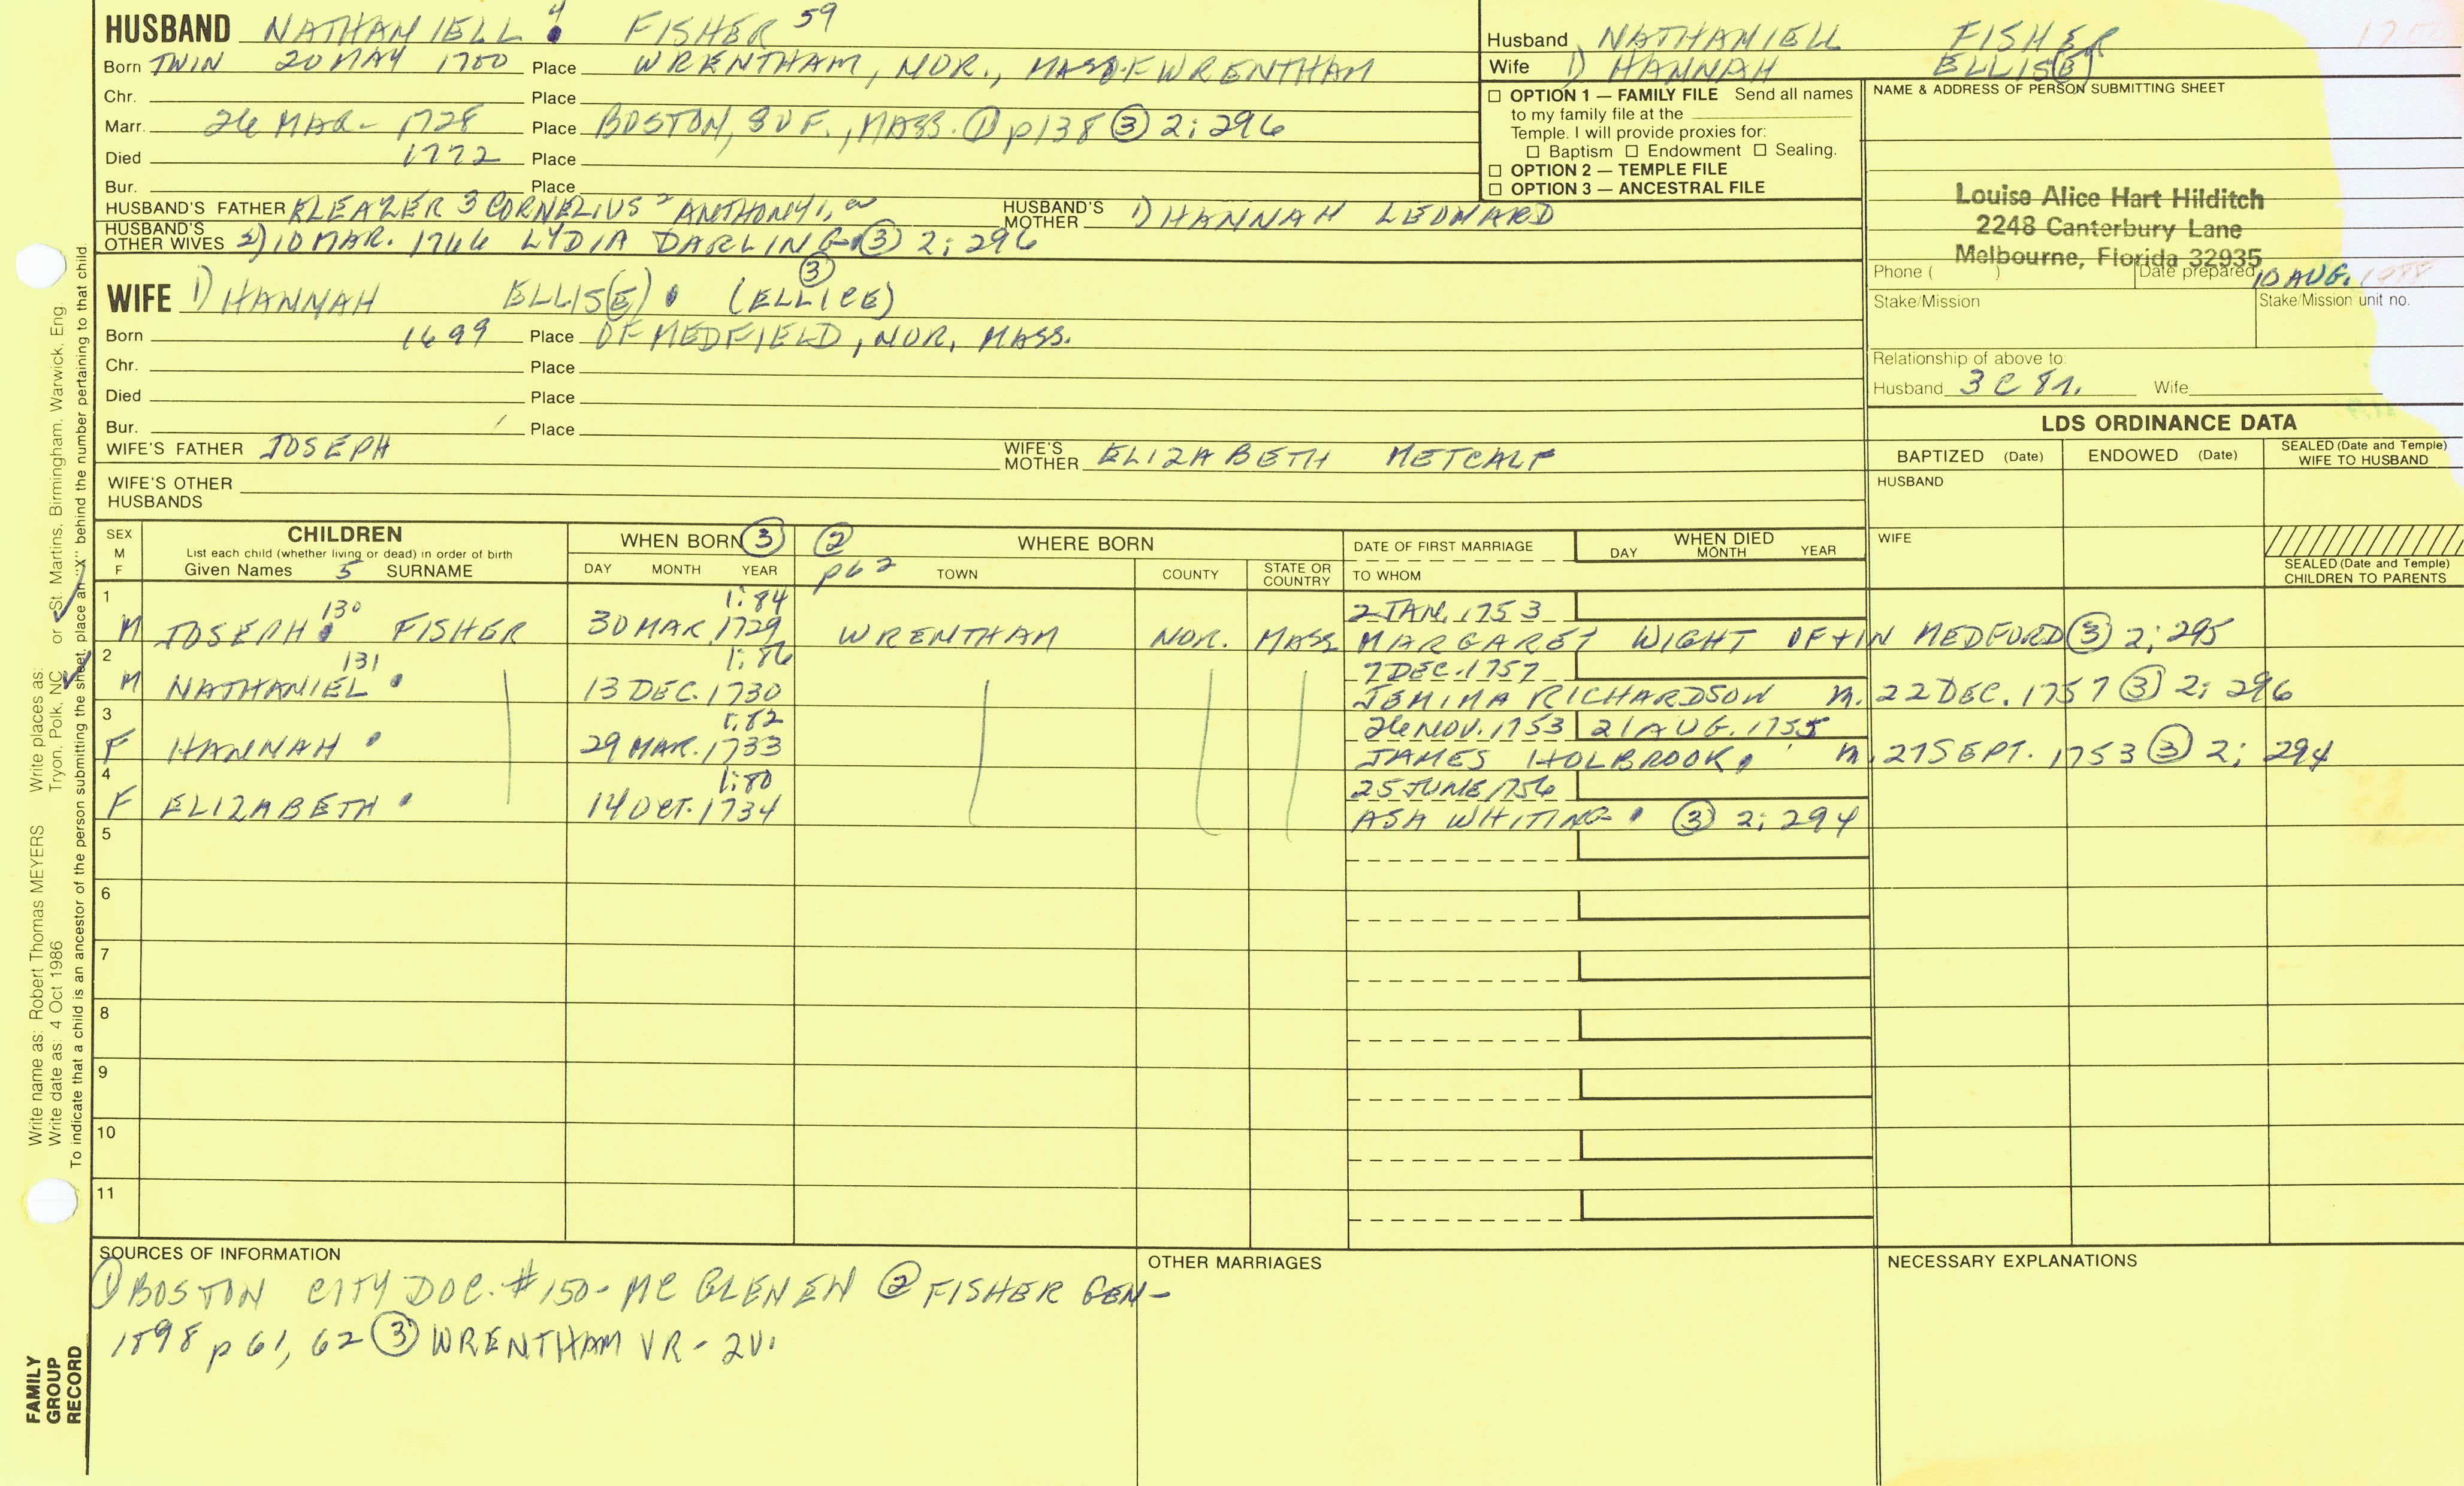 HUSBAND NATHANIELL 4 FISHER 59
Born TWIN 20 MAY 1700 Place WRENTHAM, NOR., MASS. OF WRENTHAM
Chr. Place
Marr. 26 MAR- 1728 Place BOSTON, SUF., MASS. ① p138 ③ 2:296
Died 1772 Place
Bur. Place
HUSBAND'S FATHER ELEAZER 3 CORNELIUS 2 ANTHONY 1, HUSBAND'S MOTHER 1) HANNAH LEONARD
HUSBAND'S OTHER WIVES 2) 10 MAR. 1766 LYDIA DARLING ③ 2:296
WIFE 1) HANNAH ELLIS(E) ③ (ELLICE)
Born 1699 Place OF MEDFIELD, NOR, MASS.
Chr. Place
Died Place
Bur. Place
WIFE'S FATHER JOSEPH WIFE'S MOTHER ELIZABETH METCALF
WIFE'S OTHER HUSBANDS
Husband NATHANIELL FISHER
Wife 1) HANNAH ELLIS(E)
☐ OPTION 1 — FAMILY FILE Send all names
to my family file at the
Temple. I will provide proxies for:
☐ Baptism ☐ Endowment ☐ Sealing.
☐ OPTION 2 — TEMPLE FILE
☐ OPTION 3 — ANCESTRAL FILE
NAME & ADDRESS OF PERSON SUBMITTING SHEET
Louise Alice Hart Hilditch
2248 Canterbury Lane
Melbourne, Florida 32935
Phone ( ) Date prepared 10 AUG.
Stake/Mission Stake/Mission unit no.
Relationship of above to:
Husband 3 C 8 Wife
LDS ORDINANCE DATA
BAPTIZED (Date) ENDOWED (Date) SEALED (Date and Temple) WIFE TO HUSBAND
HUSBAND
WIFE
SEALED (Date and Temple) CHILDREN TO PARENTS
SEX M F
CHILDREN
List each child (whether living or dead) in order of birth
Given Names 5 SURNAME
WHEN BORN ③
DAY MONTH YEAR
② p62 WHERE BORN
TOWN COUNTY STATE OR COUNTRY
DATE OF FIRST MARRIAGE
TO WHOM
WHEN DIED
DAY MONTH YEAR
1 130 1:84 2 JAN, 1753
M JOSEPH FISHER 30 MAR, 1729 WRENTHAM NOR. MASS MARGARET WIGHT OF + IN MEDFORD ③ 2:295
2 131 1:86 7 DEC. 1757
M NATHANIEL 13 DEC. 1730 JEMIMA RICHARDSON m. 22 DEC. 1757 ③ 2:296
3 1:82 26 NOV. 1753 21 AUG. 1755
F HANNAH 29 MAR. 1733 JAMES HOLBROOK m. 27 SEPT. 1753 ③ 2:294
4 1:80 25 JUNE 1756
F ELIZABETH 14 OCT. 1734 ASA WHITING ③ 2:294
5
6
7
8
9
10
11
SOURCES OF INFORMATION
① BOSTON CITY DOC. #150- MC GLENEN ② FISHER GEN-
1898 p 61, 62 ③ WRENTHAM VR- 2V.
OTHER MARRIAGES
NECESSARY EXPLANATIONS
Write name as: Robert Thomas MEYERS Write places as: Tryon, Polk, NC or St. Martins, Birmingham, Warwick, Eng
Write date as: 4 Oct 1986
To indicate that a child is an ancestor of the person submitting the sheet, place an "X" behind the number pertaining to that child.
FAMILY
GROUP
RECORD